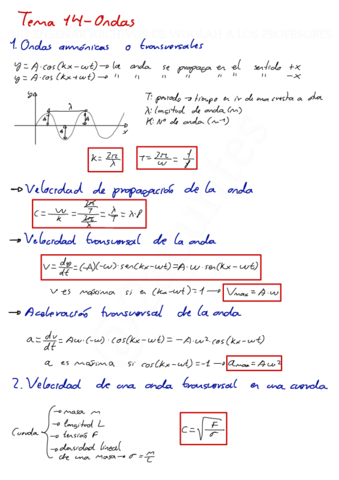 Tema 14-Ondas
1. Ondas armónicas o transversales
y = A·cos(kx-wt) → la onda se propaga en el sentido +x
y = A·cos(kx+wt) → " " " " " " " -x
y
A
λ
A
x
T: periodo → tiempo en ir de una cresta a otra
λ: longitud de onda (m)
K: Nº de onda (m⁻¹)
K = 2π/λ
T = 2π/w = 1/f
→ Velocidad de propagación de la onda
C = w/k = (2π/T)/(2π/λ) = λ/T = λ·f
→ Velocidad transversal de la onda
V = dy/dt = (-A)(-w)·sen(kx-wt) = A·w·sen(kx-wt)
V es máxima si en (kx-wt) = 1 → Vmax = A·w
→ Aceleración transversal de la onda
a = dv/dt = Aw·(-w)·cos(kx-wt) = -A·w²·cos(kx-wt)
a es máxima si cos(kx-wt) = -1 → amax = Aw²
2. Velocidad de una onda transversal en una cuerda
Cuerda
→ masa m
→ longitud L
→ tensión F
→ densidad lineal
de una masa → σ = m/L
C = √(F/σ)